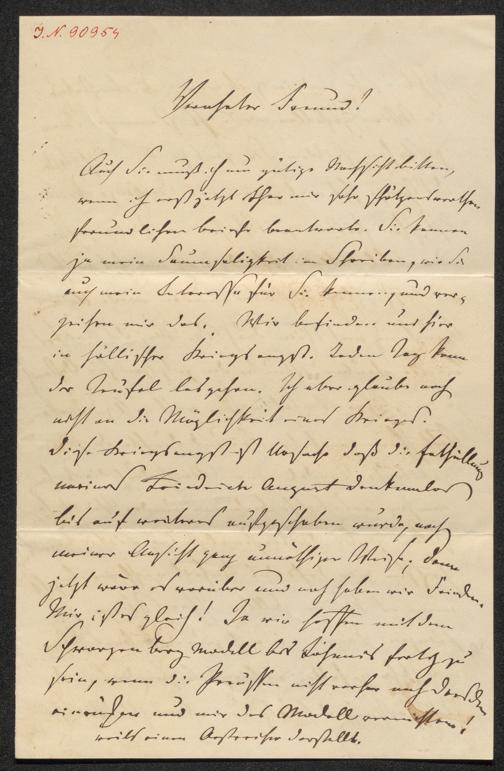 J.N. 90954
Verehrter Freund!
Auch Sie muß ich um gütige Nachsicht bitten,
wenn ich erst jetzt Ihre mir sehr schätzenswerthen
freundlichen Briefe beantworte. Sie kennen
ja meine Saumseligkeit im Schreiben, wie Sie
auch mein Interesse für Sie kennen, und ver-
zeihen mir das. Wir befinden uns hier
in höllischer Kriegsangst. Jeden Tag kann
der Teufel losgehen. Ich aber glaube noch
nicht an die Möglichkeit eines Krieges.
Diese Kriegsangst ist Ursache daß die Enthüllung
meines Friedrich August Denkmales
bis auf weiteres aufgeschoben wurde, nach
meiner Ansicht ganz unnöthiger Weise; denn
jetzt wäre es vorüber und noch haben wir Frieden.
Mir ist es gleich! Ja wir hoffen mit dem
Schwarzenberg Modell bis Johannis fertig zu
sein, wenn die Preussen nicht vorher nach Dresden
einrücken und mir das Modell vernichten!
weils einen Oestreicher darstellt.